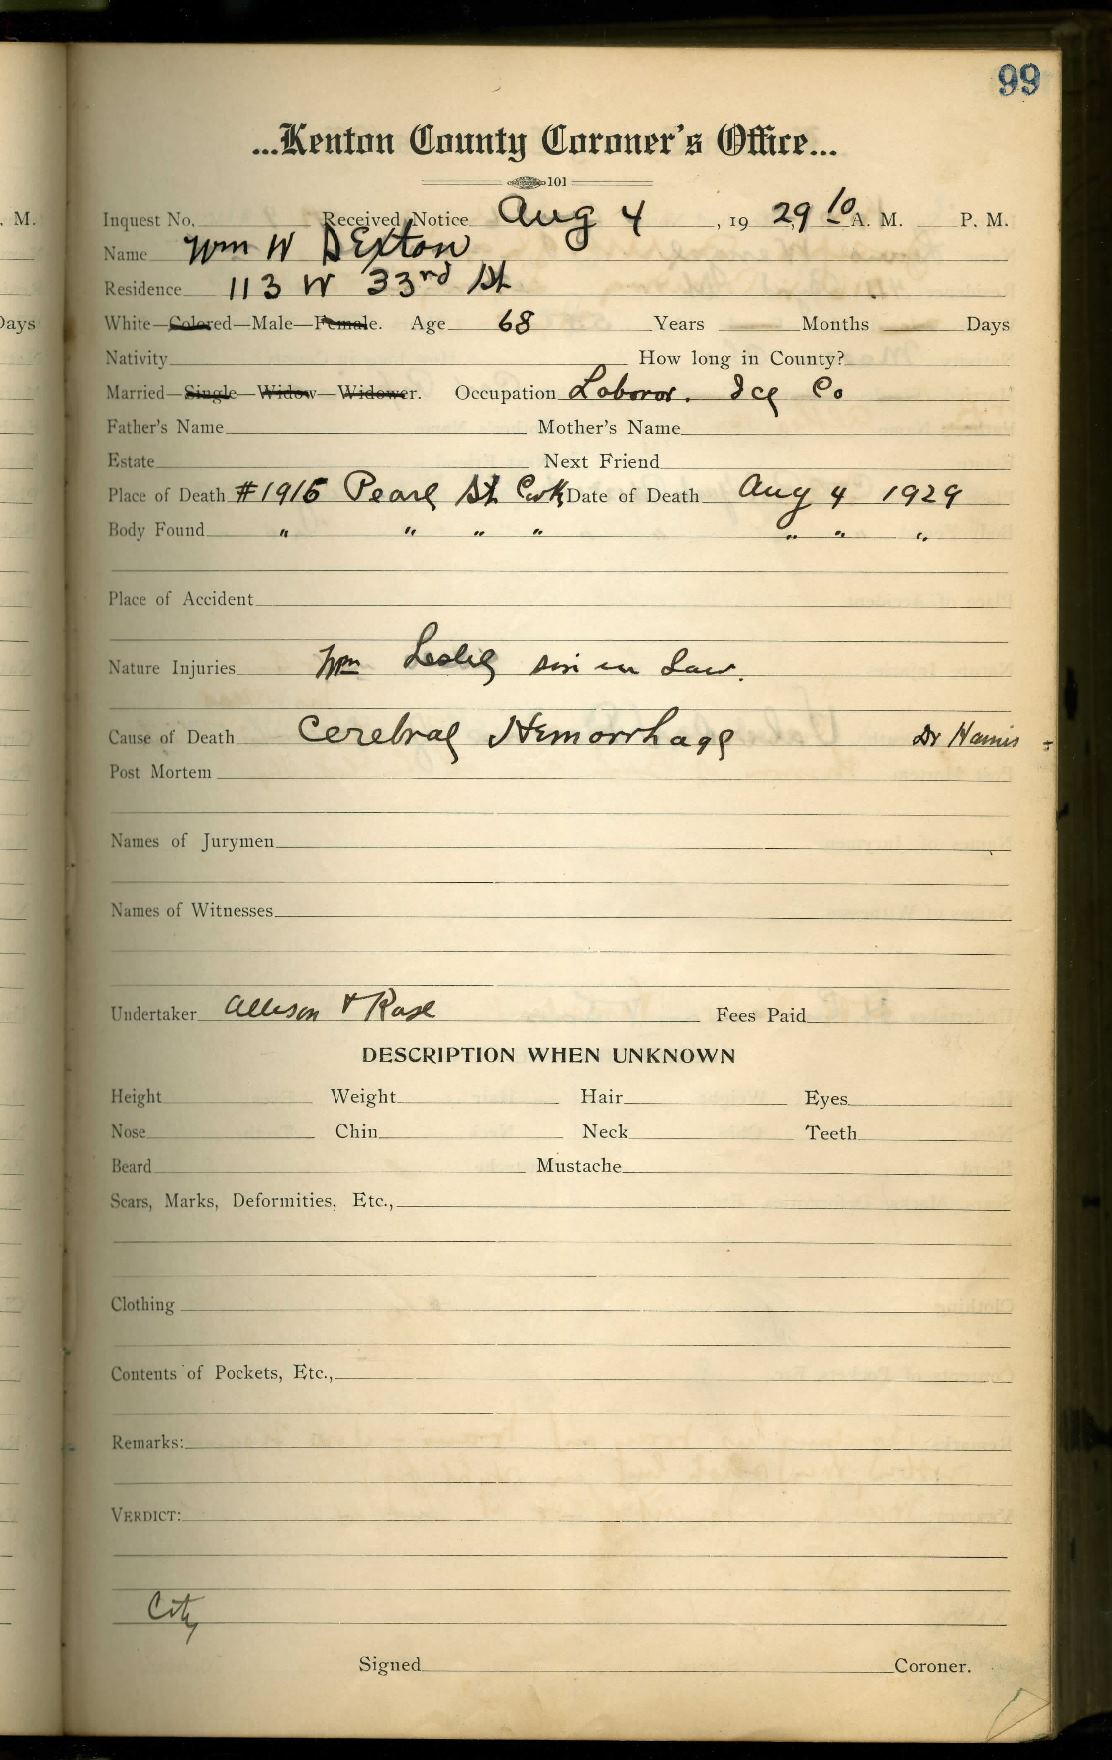 . M.
Days
99
...Kenton County Coroner's Office...
101
Inquest No. Received Notice Aug 4, 19 29 10 A. M. P. M.
Name Wm W DExton
Residence 113 W 33rd St
White—Colored—Male—Female. Age 68 Years Months Days
Nativity How long in County?
Married—Single—Widow—Widower. Occupation Laboror. Ice Co
Father's Name Mother's Name
Estate Next Friend
Place of Death #1915 Pearl St Cov. Date of Death Aug 4 1929
Body Found " " " " " " "
Place of Accident
Nature Injuries Wm Leslie son in Law.
Cause of Death Cerebral Hemorrhage Dr Harris
Post Mortem
Names of Jurymen
Names of Witnesses
Undertaker Allison & Rose Fees Paid
DESCRIPTION WHEN UNKNOWN
Height Weight Hair Eyes
Nose Chin Neck Teeth
Beard Mustache
Scars, Marks, Deformities, Etc.,
Clothing
Contents of Pockets, Etc.,
Remarks:
VERDICT:
City
Signed Coroner.